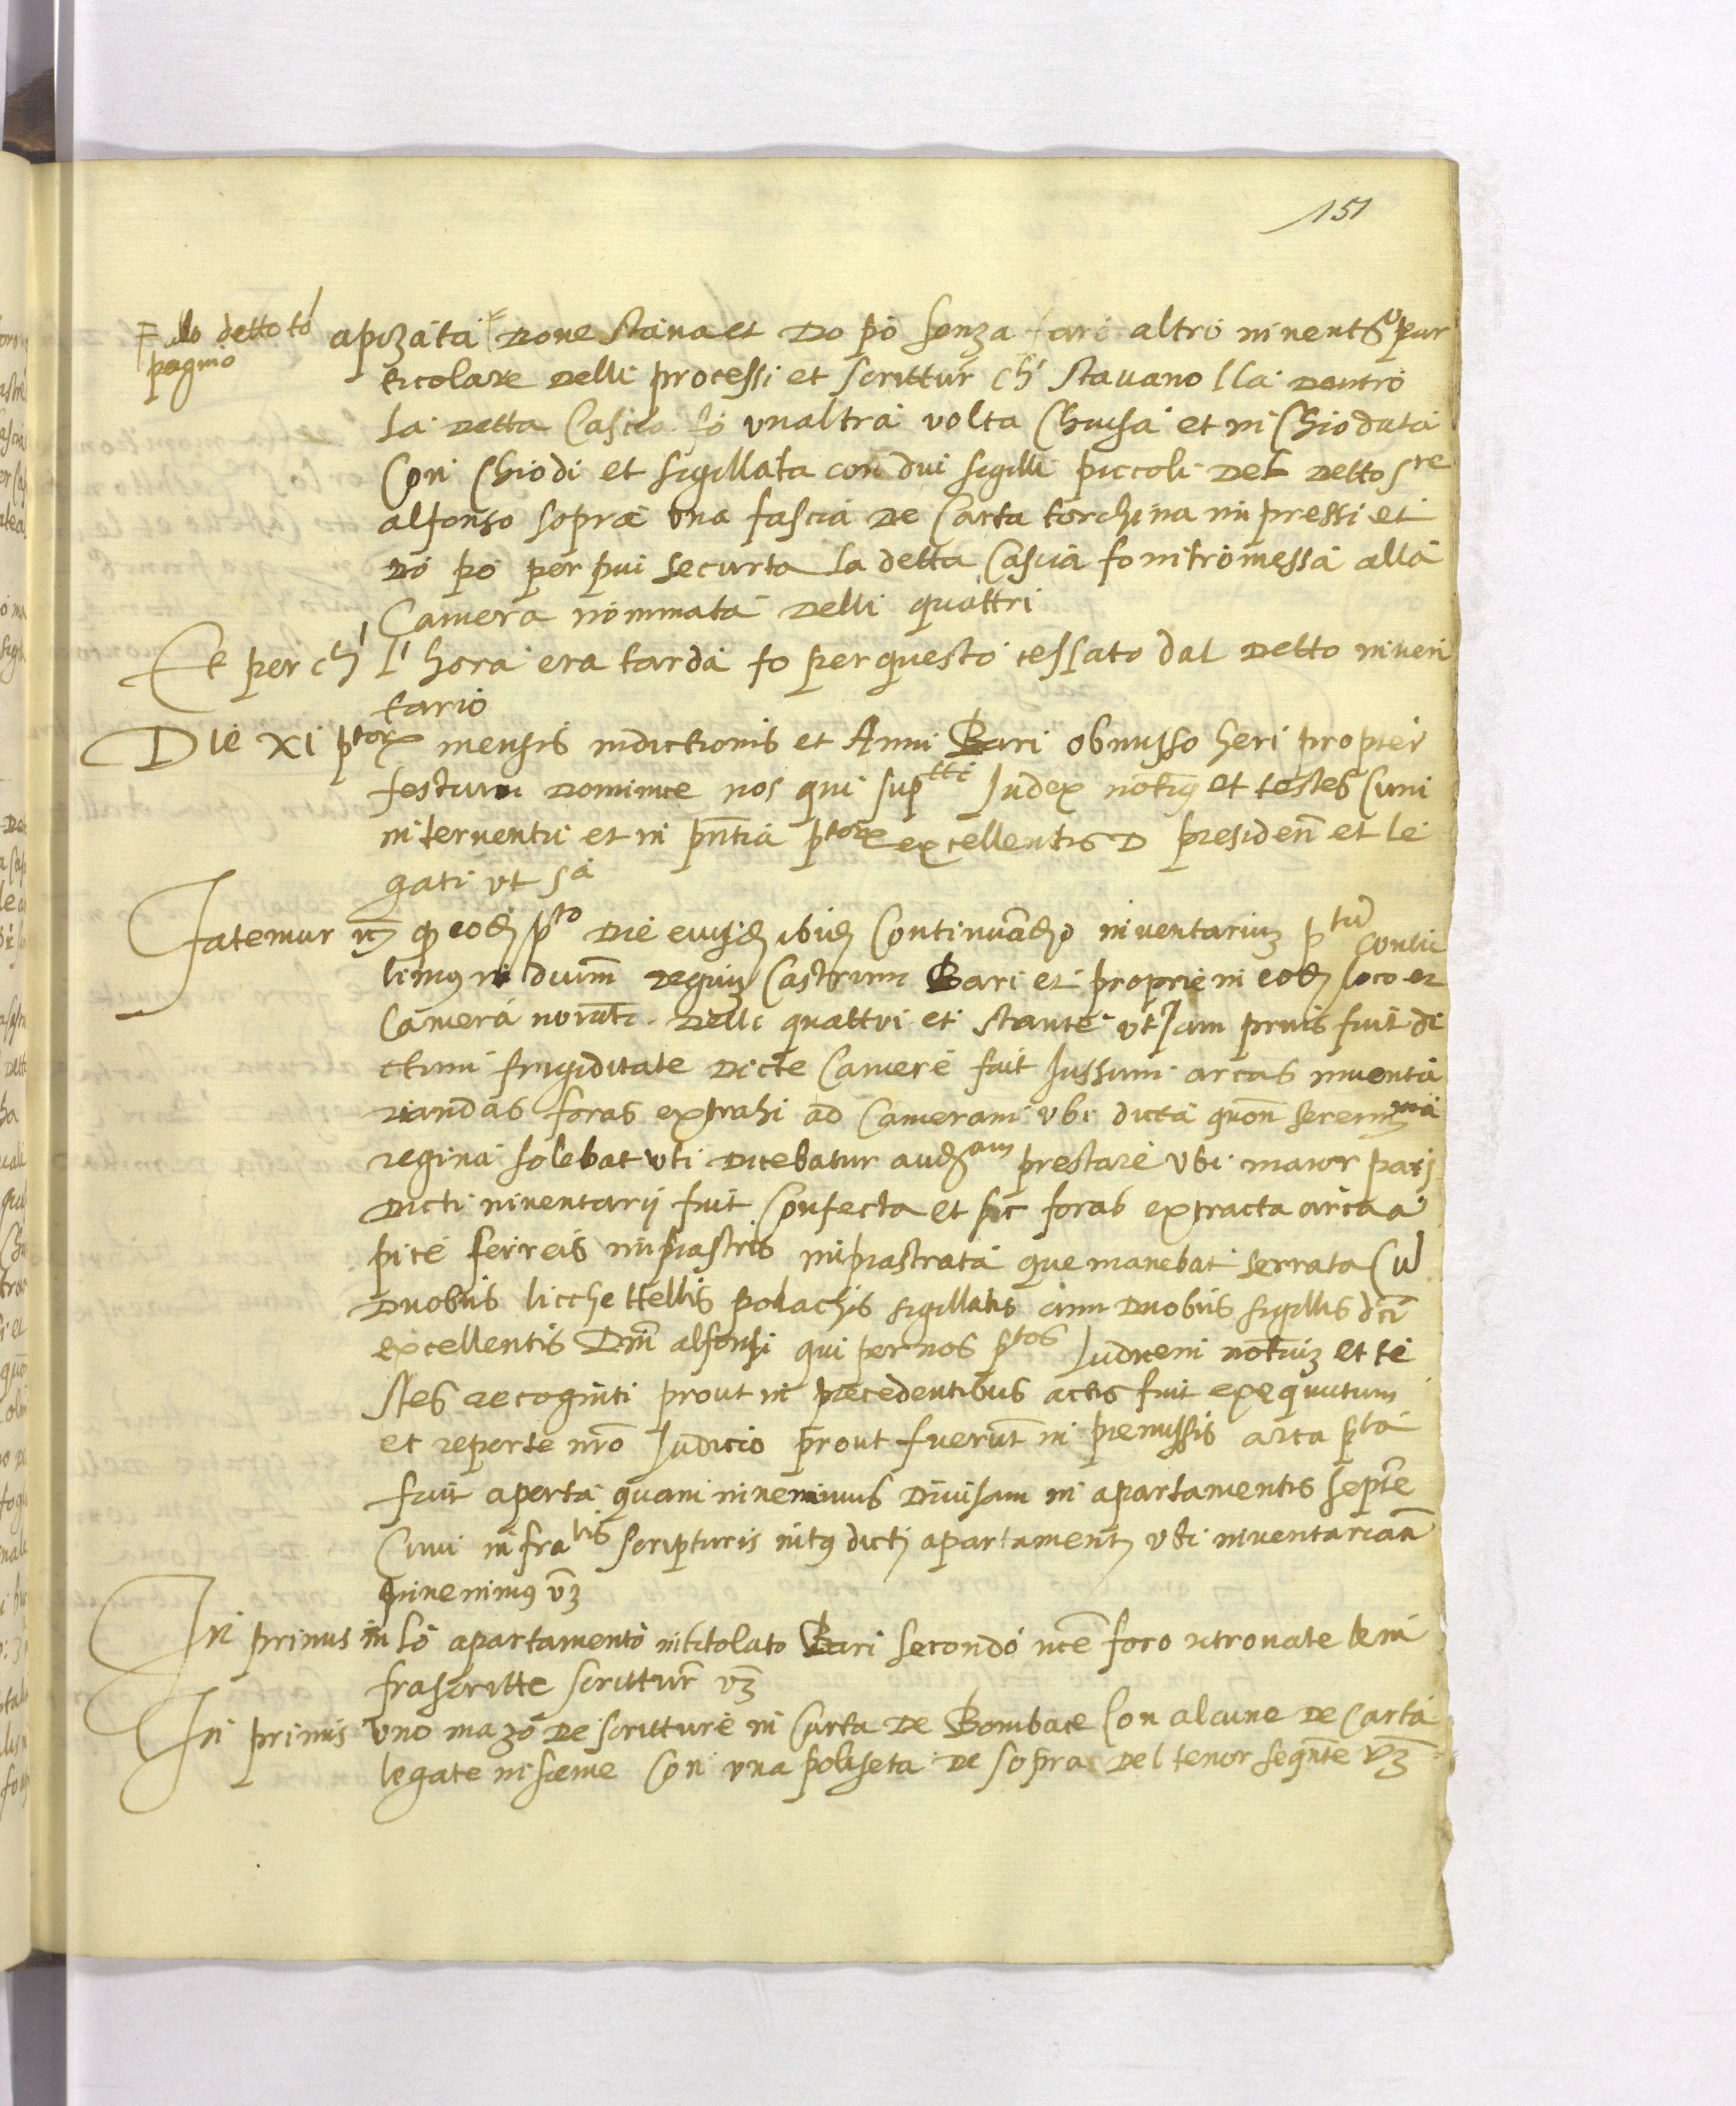 151
F allo detto to
pagnio
apizata F Dove stava et Do po senza fare altro inventro par
ticolare Delli processi et scrittur ch' stavano lla Dentro
La Detta Cascia fo unaltra volta Chiusa et inChiodata
Con Chiodi et sigillata con dui sigilli piccoli Del Detto sre
alfonso sopra una fascia De Carta torchina impressi et
Do po per piui securta La detta Cascia fo intromessa alla
Camera nominata Delli quattri
Et per ch' l'hora era tarda fo per questo cessato dal Detto inven
tario
Die xi ptor mensis indictionis et Anni Bari obmisso heri propter
festum Dominice nos qui suptti Iudex notus et testes Cum
interventu et in pntia ptor excellentis D presiden et le
gati ut sa
Fatemur q eod pto Die eiusd ibid Continuado inventariuz ptu contu
limus in dium Regiuz Castrum Bari et proprie in eod loco et
Camera noiata Delli quattri et stante ut Iam prius fuit di
ctum frigiditate Dicte Camere fuit Iussum arcas inventa
riandas foras extrahi ad Cameram ubi dicta quon serenma
regina solebat uti Dicebatur audam prestare Ubi maior pars
Dicti inventarij fuit Confecta et sic foras extracta arca a
pice ferreis inpiastris inpiastrata que manebat serrata Cu
Duobus licchettellis polachis sigillatis cum Duobus sigillis dci
excellentis Dni alfonsi qui per nos ptos Iudicem notuiz et te
stes recogniti prout in precedentibus actis fuit exequutum
et reperte nro Iudicio prout fuerut in premissis arca pta
fuit aperta quam invenimus Divisam in apartamentis septe
Cum infratis scripturis intus dicti apartament ubi inventarian
invenimus vz
In primis in lo apartamento intitolato Bari secondo nce foro retrovate le in
frascritte scrittur vz
In primis Uno mazo De scritture in Carta De Bombace Con alcune De Carta
legate insieme Con una poliseta De sopra Del tenor seqnte vz